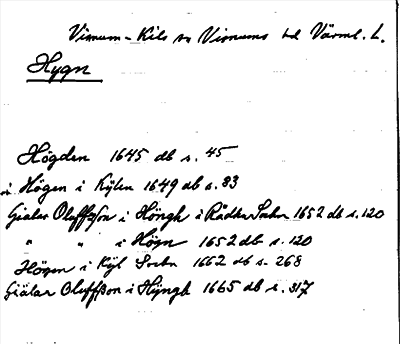 Visnum-Kils sn Visnums hd Värml. l.
Hygn
Högden 1645 db s. 45
i Högen i Kylen 1649 db s. 83
Giälar Oluffsson i Höngh i Rådha Sochn 1652 db s. 120
" " i Högn 1652 db s. 120
Högen i Kyl Sochn 1662 db s. 268
Giälar Oluffsson i Hÿngh 1665 db s. 317